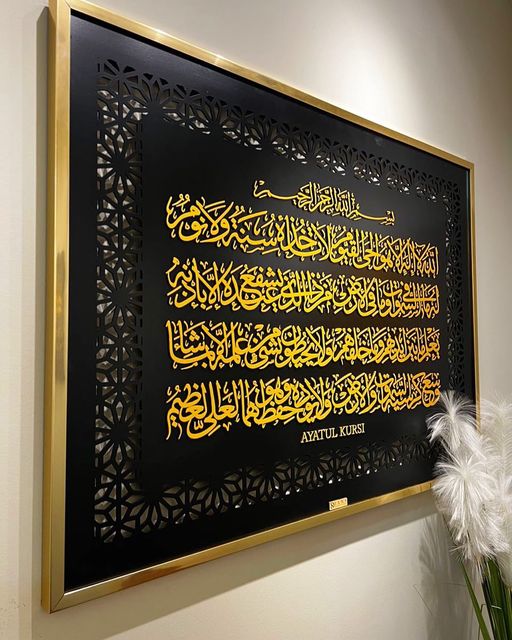 بسم الله الرحمن الرحيم
الله لا إله إلا هو الحي القيوم لا تأخذه سنة ولا نوم
له ما في السموات وما في الأرض من ذا الذي يشفع عنده إلا بإذنه
يعلم ما بين أيديهم وما خلفهم ولا يحيطون بشيء من علمه إلا بما شاء
وسع كرسيه السموات والأرض ولا يؤده حفظهما وهو العلي العظيم
AYATUL KURSI